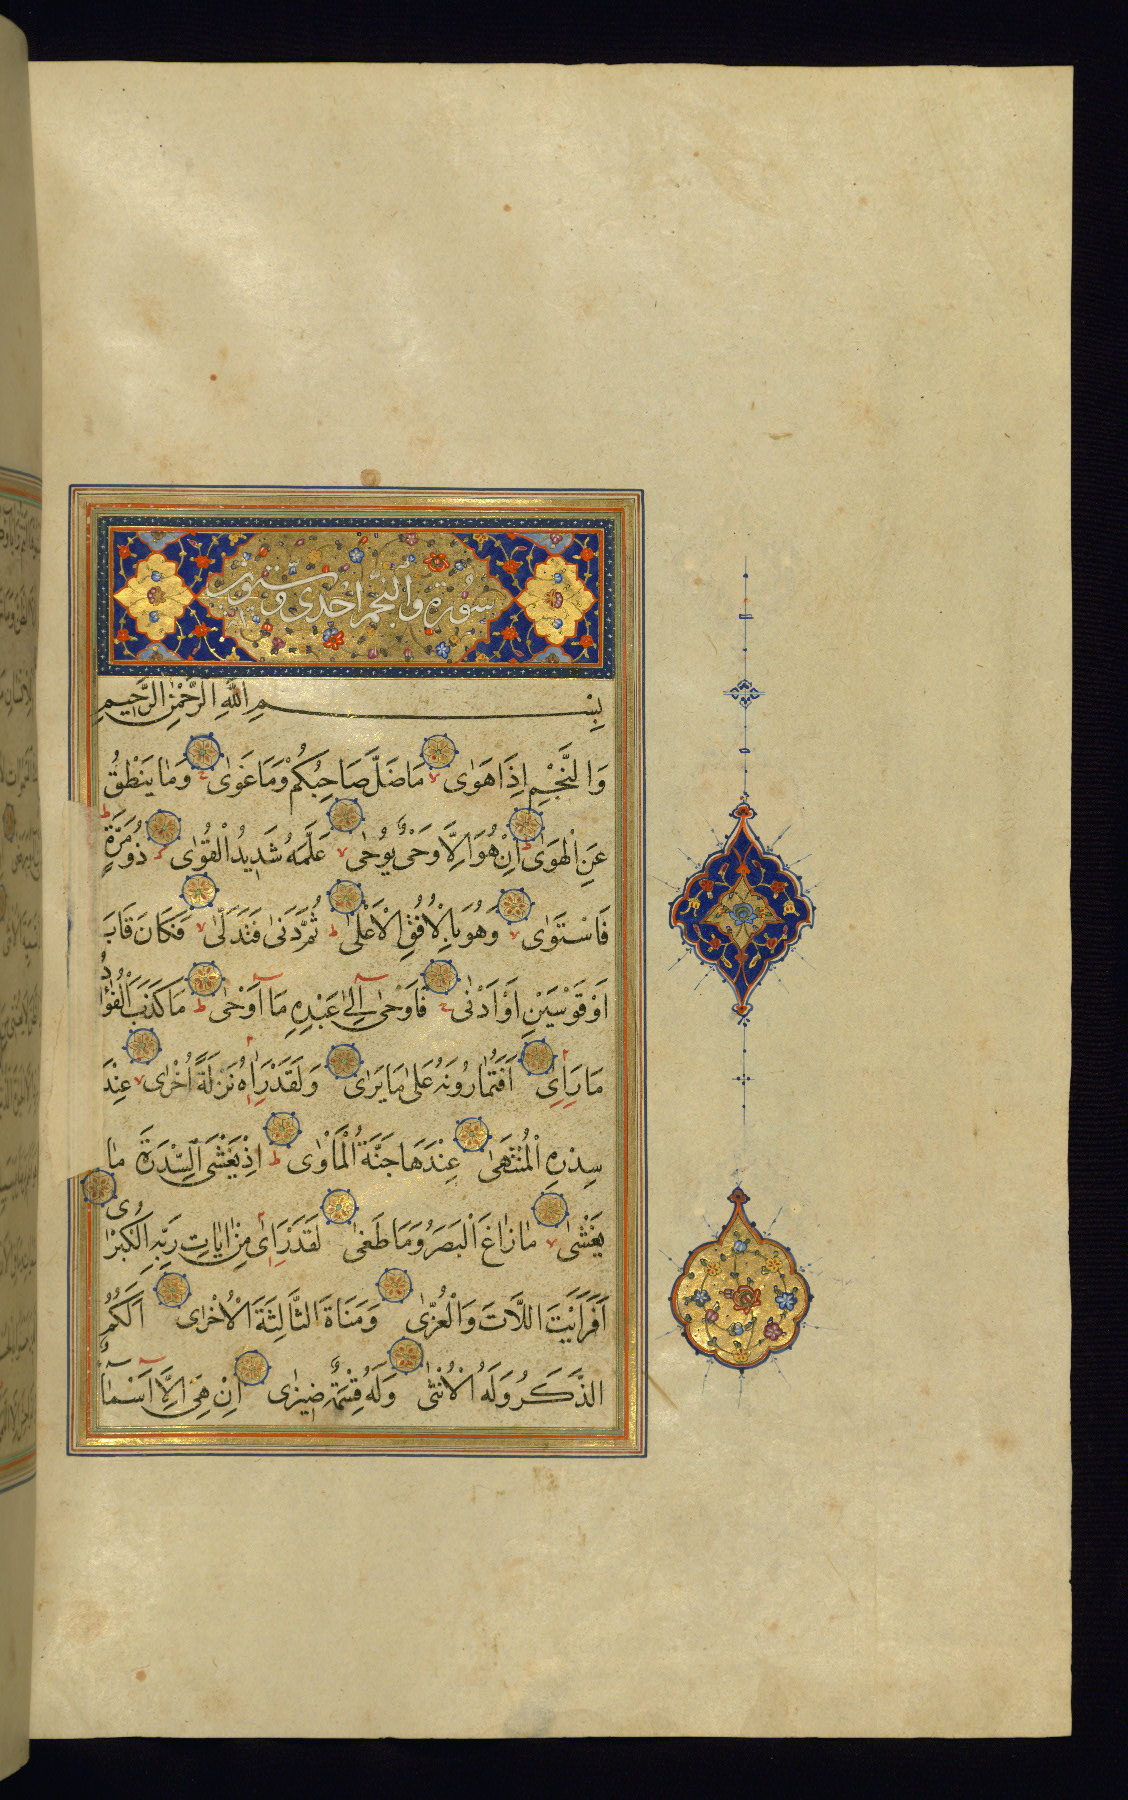 سورة والنجم احدى وستون
بِسْمِ اللَّهِ الرَّحْمٰنِ الرَّحِيمِ
وَالنَّجْمِ اِذَا هَوٰى مَا ضَلَّ صَاحِبُكُمْ وَمَا غَوٰى وَمَا يَنْطِقُ
عَنِ الْهَوٰى اِنْ هُوَ اِلَّا وَحْىٌ يُوحٰى عَلَّمَهُ شَدِيدُ الْقُوٰى ذُو مِرَّةٍ
فَاسْتَوٰى وَهُوَ بِالْاُفُقِ الْاَعْلٰى ثُمَّ دَنٰى فَتَدَلّٰى فَكَانَ قَابَ
قَوْسَيْنِ اَوْ اَدْنٰى فَاَوْحٰى اِلٰى عَبْدِهِ مَا اَوْحٰى مَا كَذَبَ الْفُؤٰادُ
مَا رَاٰى اَفَتُمَارُونَهُ عَلٰى مَا يَرٰى وَلَقَدْ رَاٰهُ نَزْلَةً اُخْرٰى عِنْدَ
سِدْرَةِ الْمُنْتَهٰى عِنْدَهَا جَنَّةُ الْمَأْوٰى اِذْ يَغْشَى السِّدْرَةَ مَا
يَغْشٰى مَا زَاغَ الْبَصَرُ وَمَا طَغٰى لَقَدْ رَاٰى مِنْ اٰيَاتِ رَبِّهِ الْكُبْرٰى
اَفَرَاَيْتَ اللَّاتَ وَالْعُزّٰى وَمَنَاةَ الثَّالِثَةَ الْاُخْرٰى اَلَكُمُ
الذَّكَرُ وَلَهُ الْاُنْثٰى وَلَهُ قِسْمَةٌ ضِيزٰى اِنْ هِىَ اِلَّا اَسْمَاءٌ